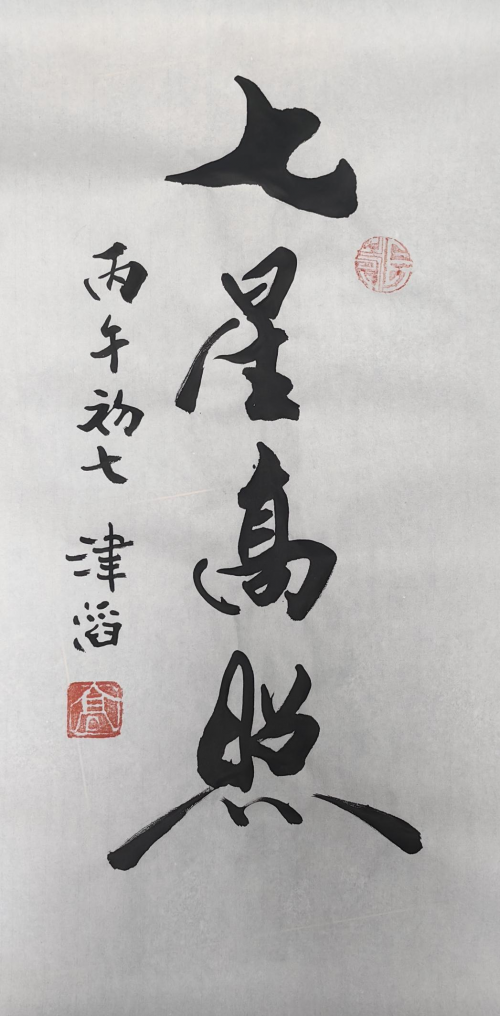 七星高照
丙午初七 津滔